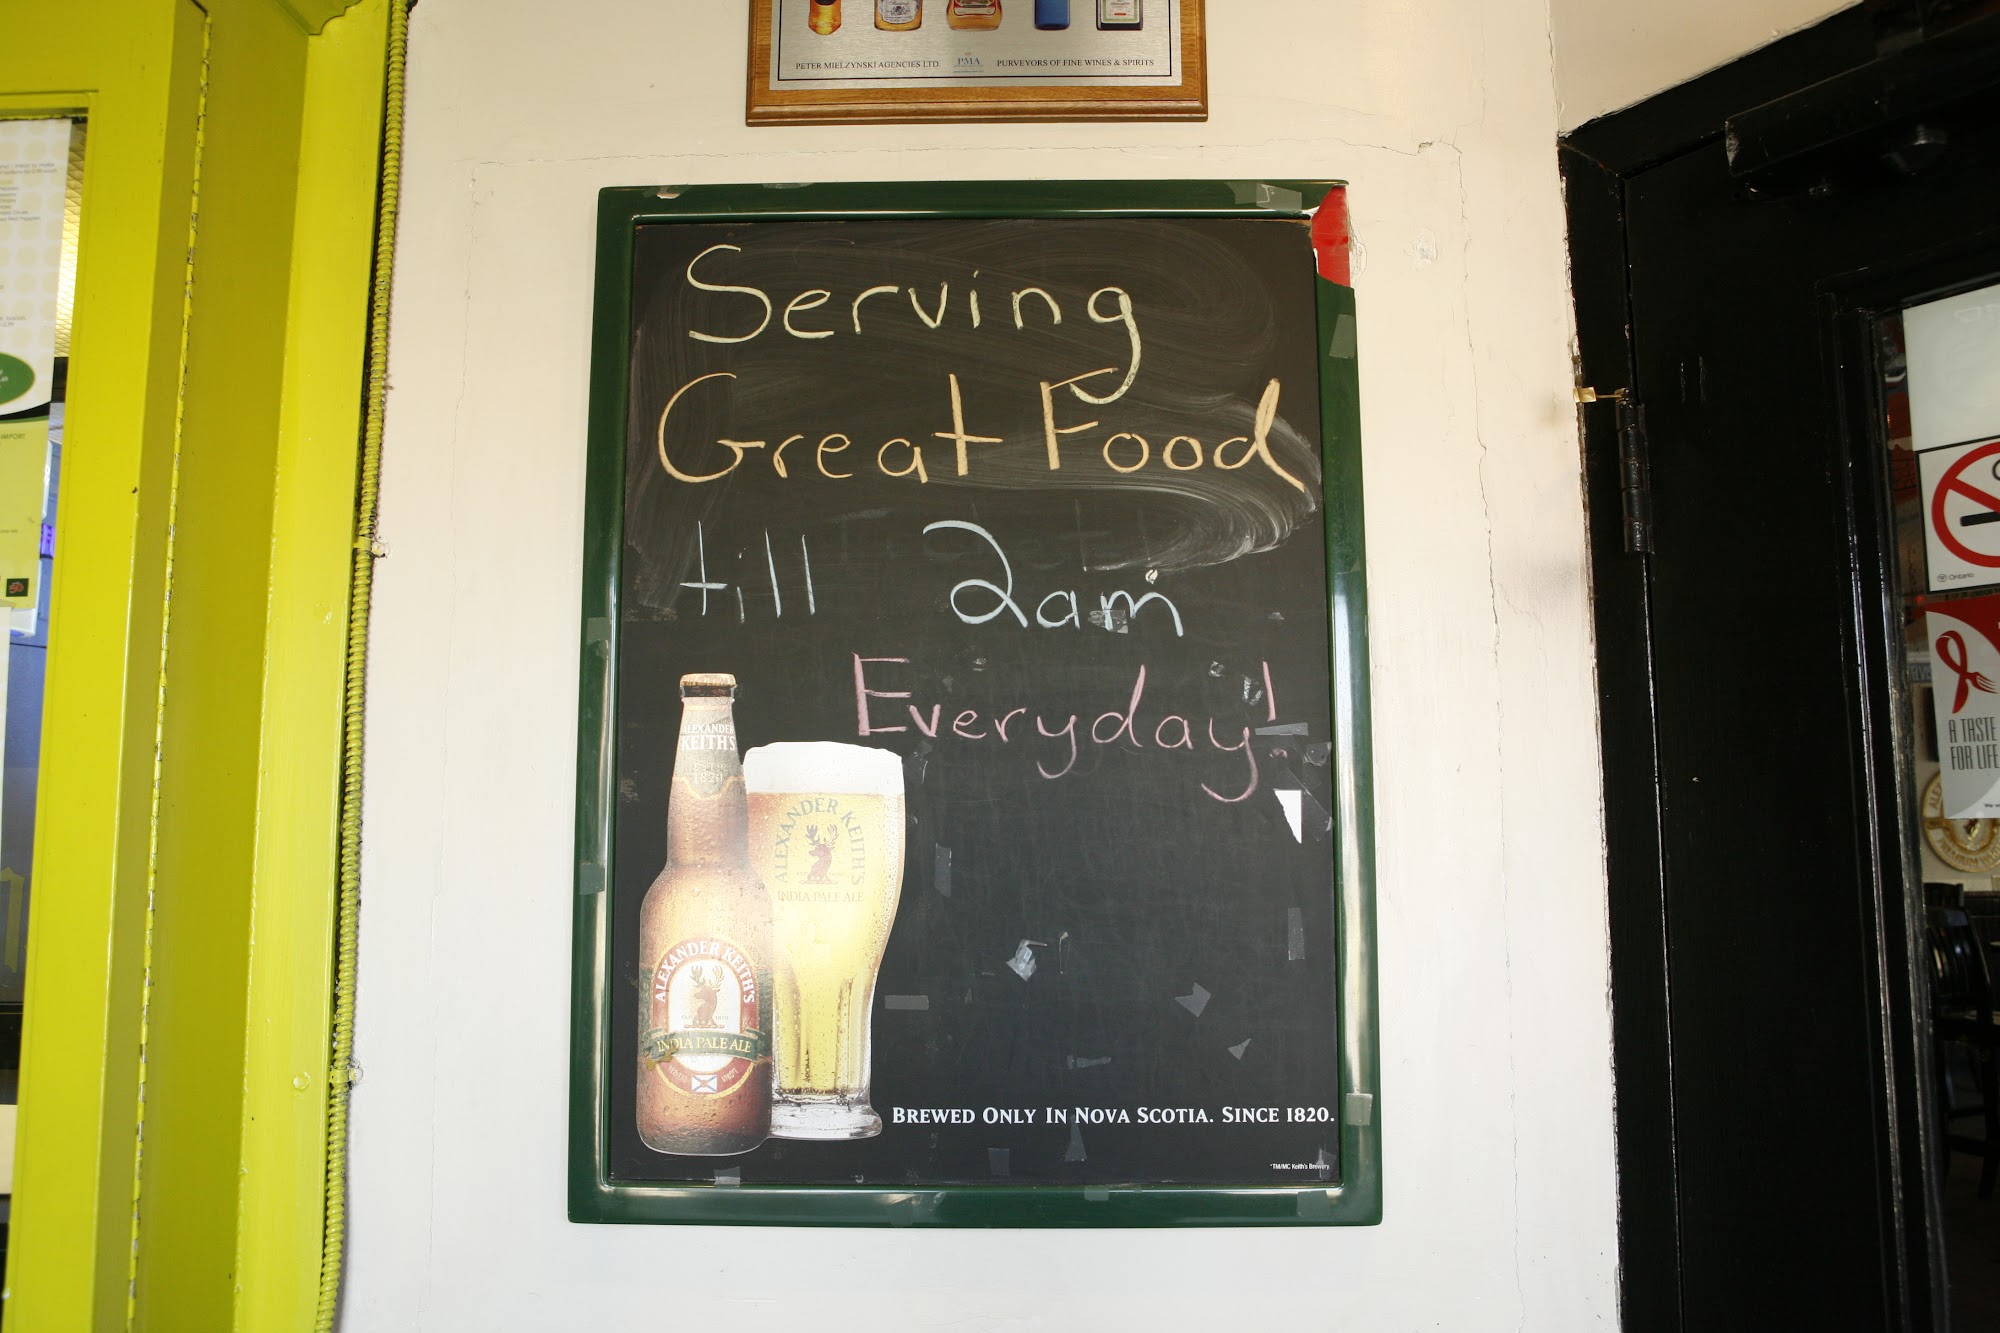 PETER MIELZYNSKI AGENCIES LTD. PMA PURVEYORS OF FINE WINES & SPIRITS
Serving
Great Food
till 2am
Everyday!
ALEXANDER
KEITH'S
ESTD
1820
ALEXANDER KEITH'S
INDIA PALE ALE
ALEXANDER KEITH'S
INDIA PALE ALE
BREWED ONLY IN NOVA SCOTIA. SINCE 1820.
*TM/MC Keith's Brewery
IMPORT
Ontario
A TASTE
FOR LIFE